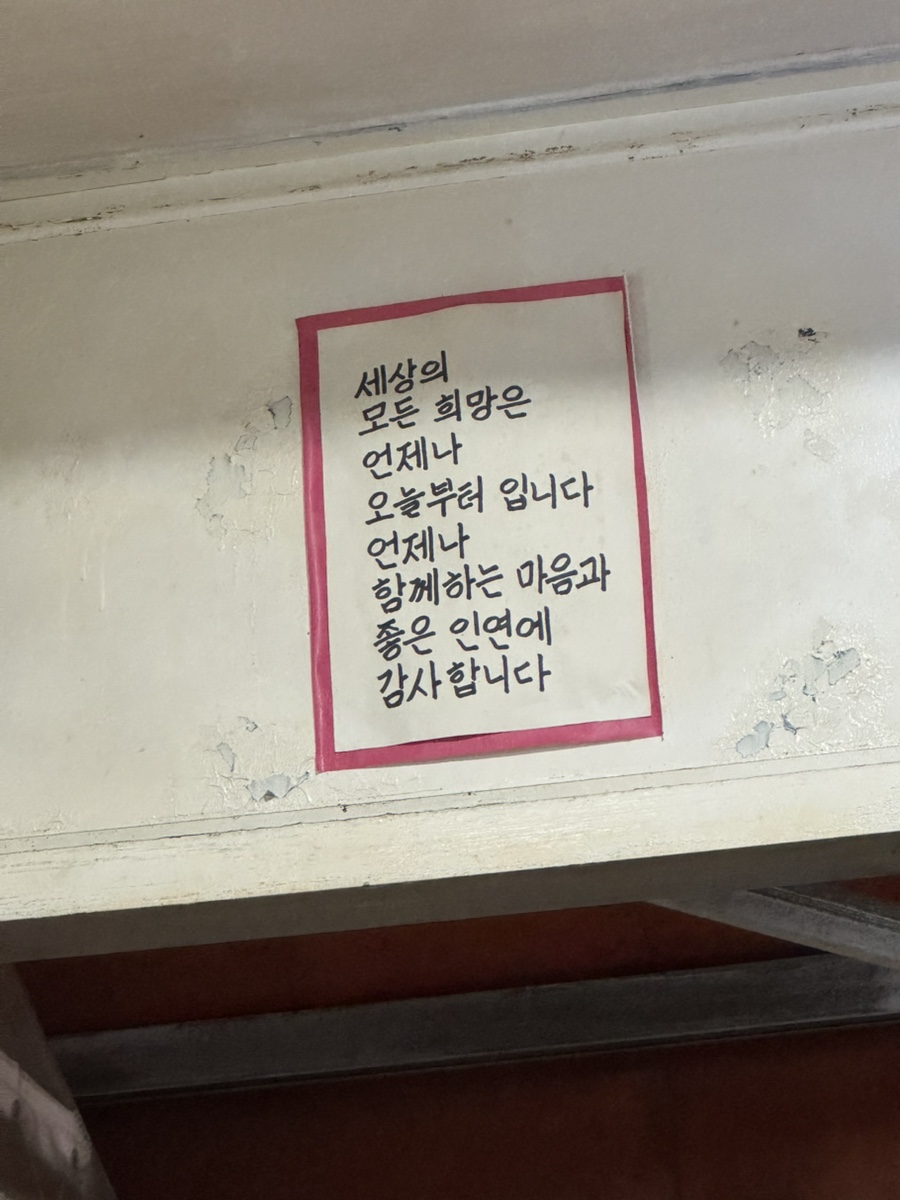 세상의
모든 희망은
언제나
오늘부터 입니다
언제나
함께하는 마음과
좋은 인연에
감사합니다